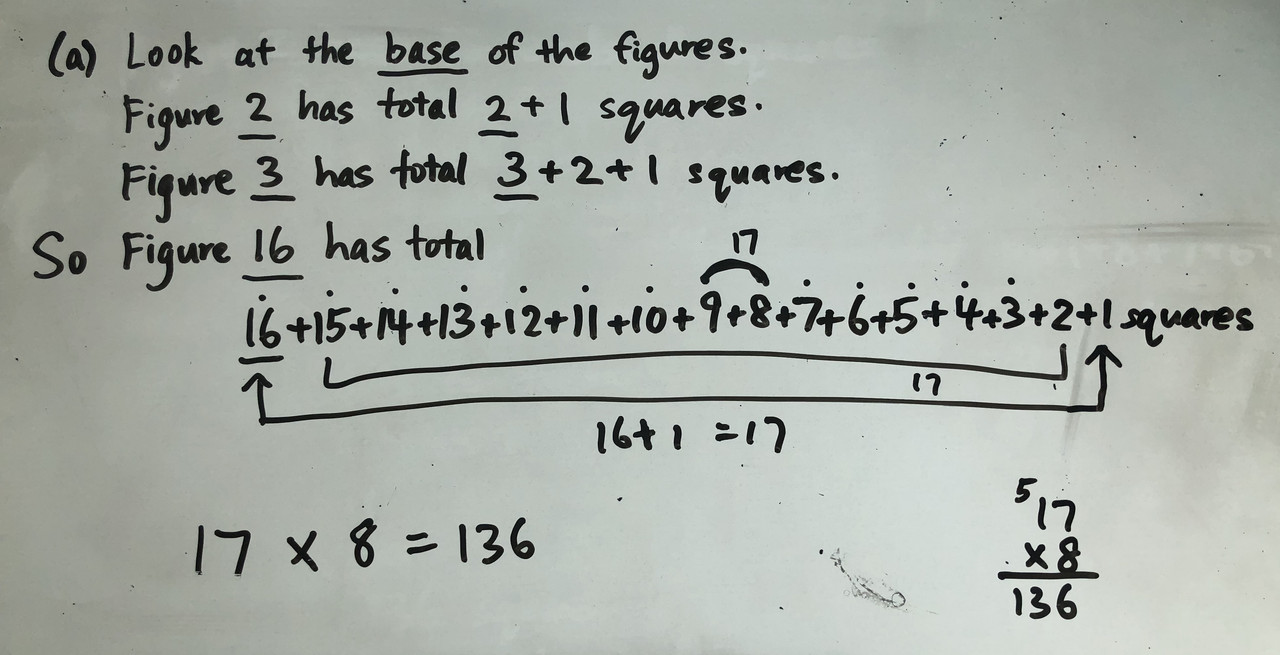 (a) Look at the base of the figures.
Figure 2 has total 2+1 squares.
Figure 3 has total 3+2+1 squares.
So Figure 16 has total
17
16+15+14+13+12+11+10+9+8+7+6+5+4+3+2+1 squares
17
16+1 =17
17 x 8 = 136
5
17
x8
136